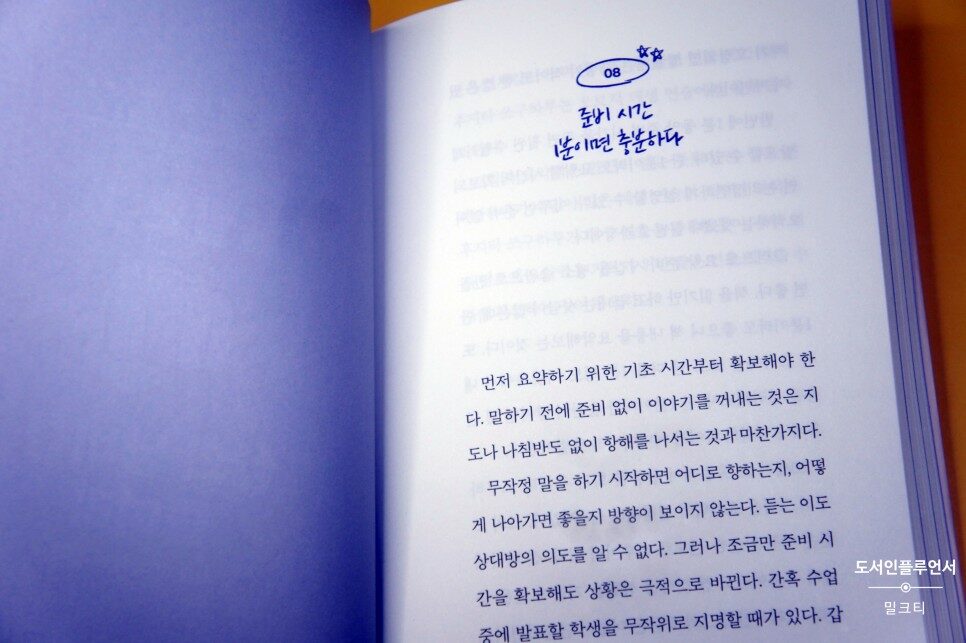 08
준비 시간
1분이면 충분하다
먼저 요약하기 위한 기초 시간부터 확보해야 한
다. 말하기 전에 준비 없이 이야기를 꺼내는 것은 지
도나 나침반도 없이 항해를 나서는 것과 마찬가지다.
무작정 말을 하기 시작하면 어디로 향하는지, 어떻
게 나아가면 좋을지 방향이 보이지 않는다. 듣는 이도
상대방의 의도를 알 수 없다. 그러나 조금만 준비 시
간을 확보해도 상황은 극적으로 바뀐다. 간혹 수업
중에 발표할 학생을 무작위로 지명할 때가 있다. 갑
도서인플루언서
밀크티